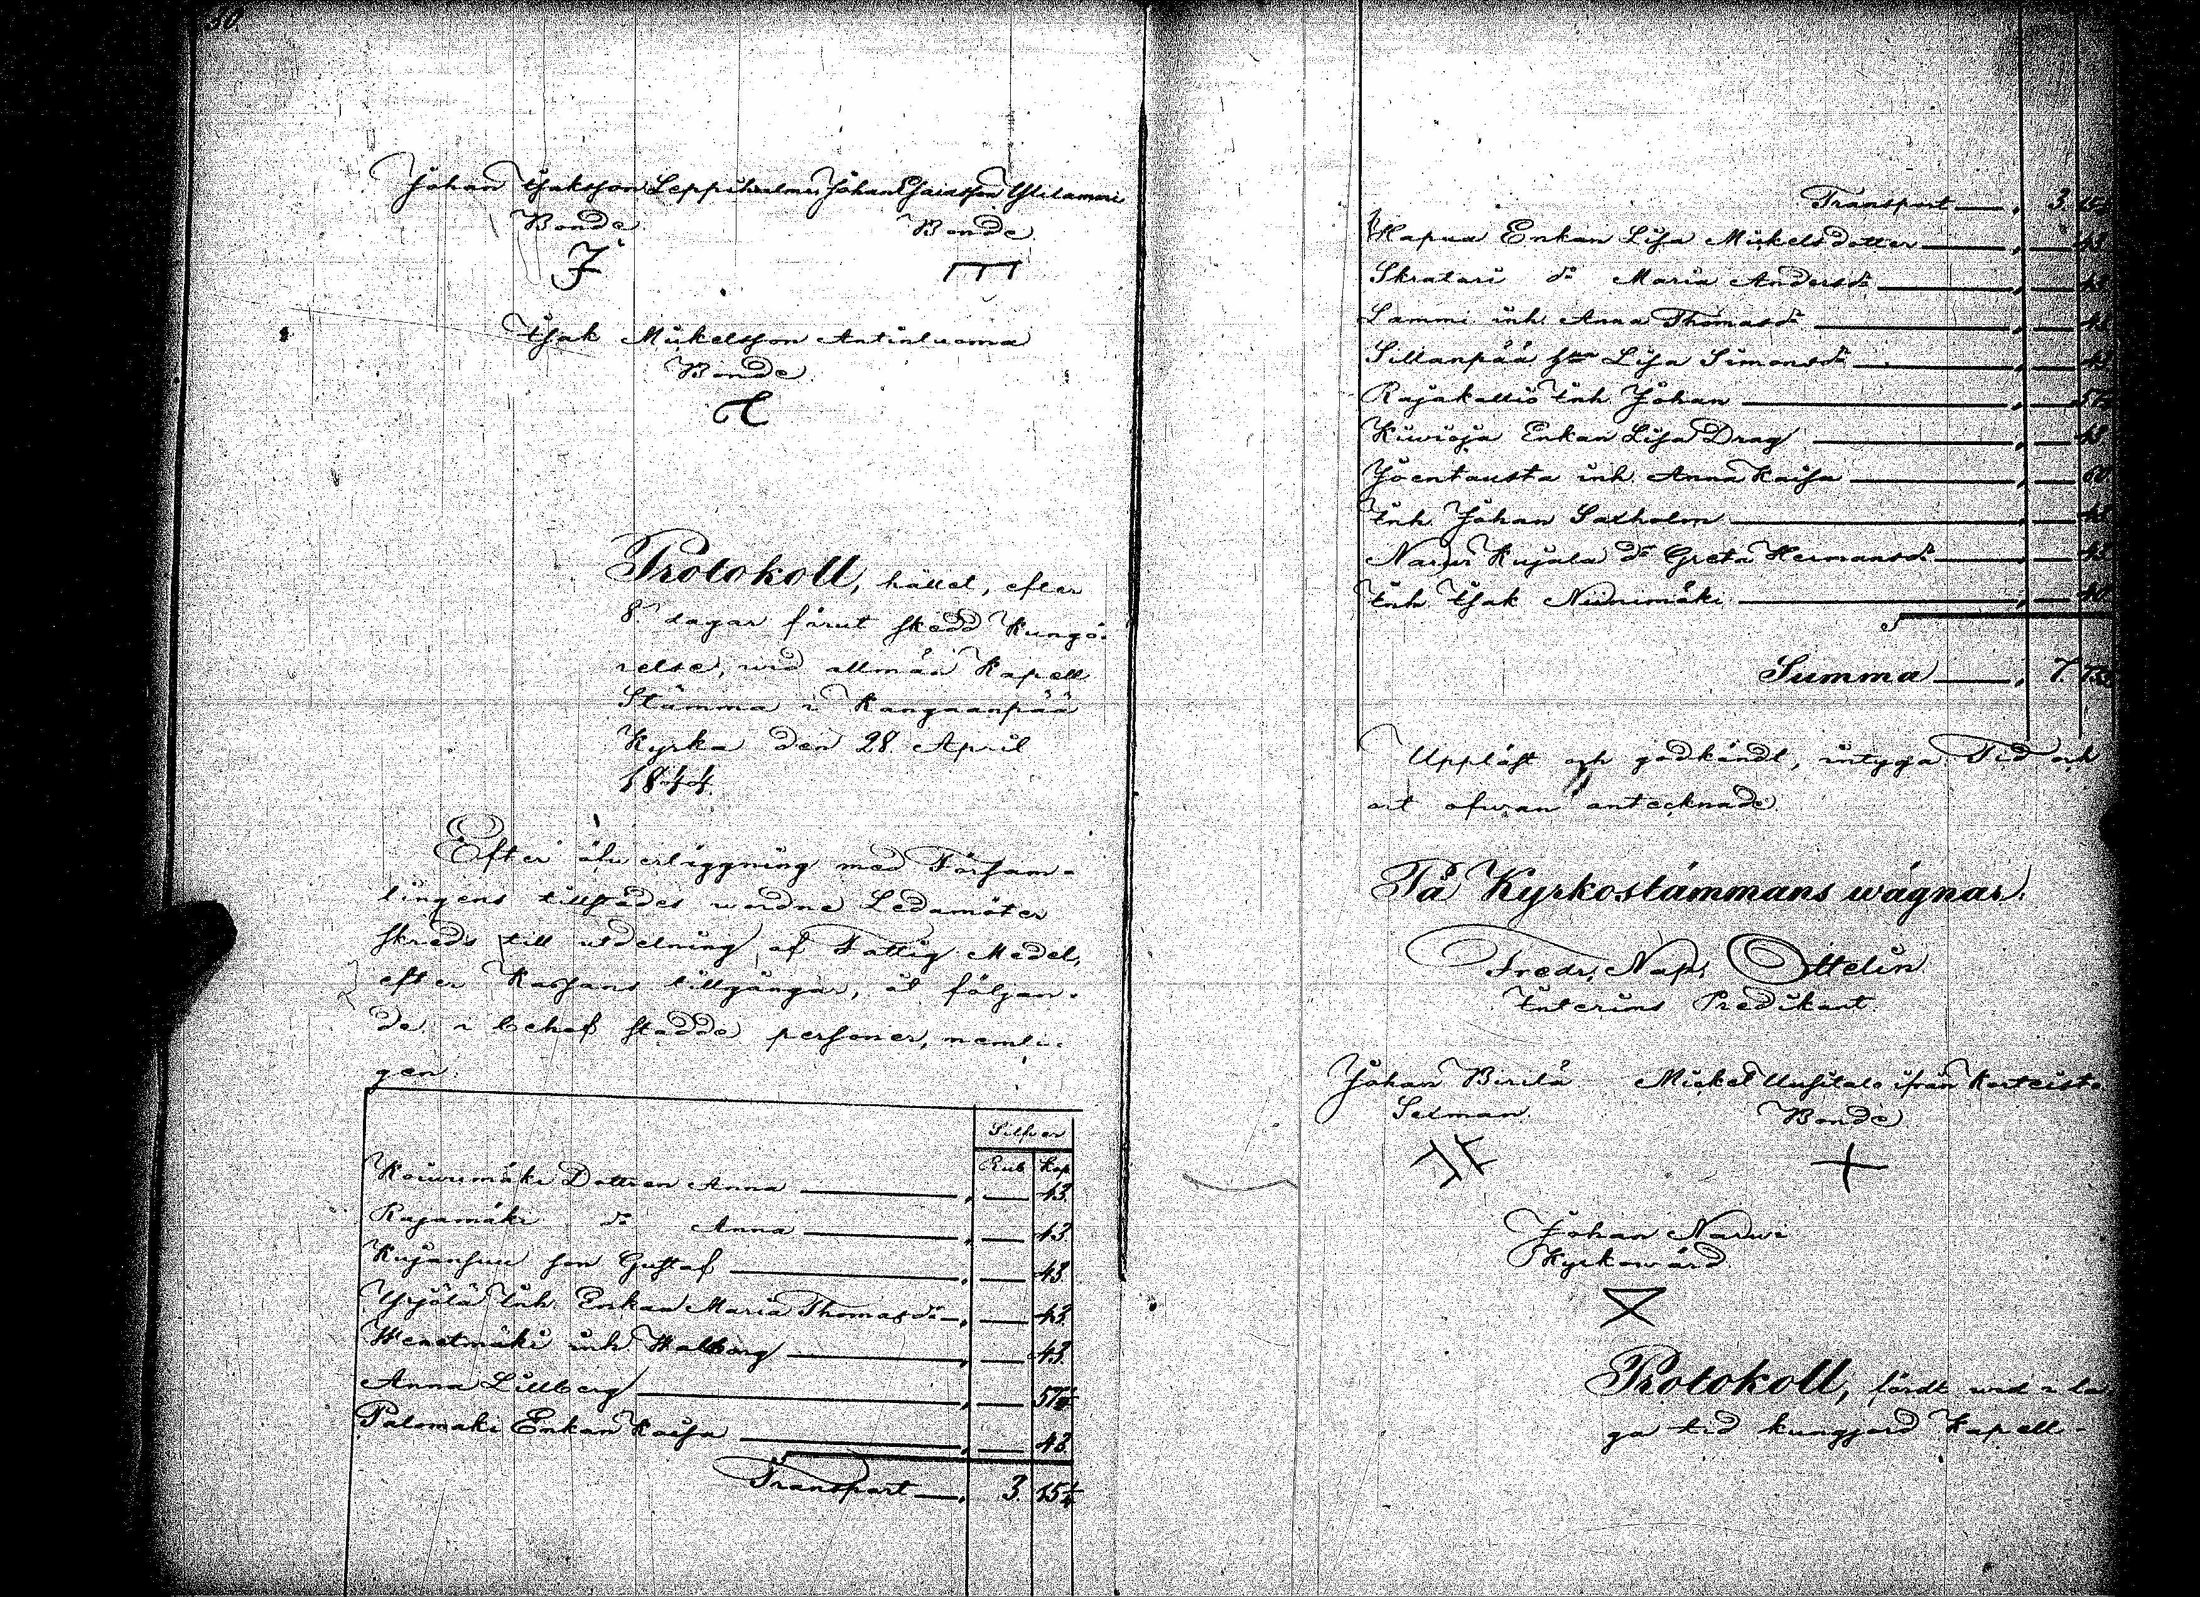 30
Johan Isaksson Leppihalme Johan Esaiasson Ylilammi
Bonde Bonde
Isak Mickelsson Antinluoma
Bonde
Protokoll, hållet, efter
8 dagar förut skedd Kungö-
relse, wid allmän Kapell
Stämma i Kangaanpää
Kyrka den 28 April
1844.
Efter öfwerläggning med Försam-
lingens tillstädes wordne Ledamöter
skreds till utdelning af Fattig Medel,
efter Kassans tillgångar, åt följan-
de i behof stadde personer, nemli-
gen:
Silfver
Rub Kop
Koiwumäki Dottren Anna 43.
Rajamäki do Anna 43
Kujansuu son Gustaf 43.
Yrjölä Inh. Enkan Maria Thomasdr 43.
Wenetmäki inh Walborg 43.
Anna Lillberg 57
Palomäki Enkan Kaisa 43
Transport 3. 15
Transport 3. 15
Hapua Enkan Lisa Mickelsdotter 43
Skratari do Maria Andersdr 43
Lammi inh. Anna Thomasdr 43
Sillanpää Lisa Simonsdr 43
Rajakallio Inh Johan 57
Kiwioja Enkan Lisa Drag 43
Joentausta inh. Anna Kaisa 60
Inh. Johan Saxholm 43
Kujala do Greta Hermansdr 43
Inh. Isak Niinimäki 40
Summa 7.
Uppläst och godkändt, intyga Tid och
ort ofwan antecknade
På Kyrkostämmans wägnar:
Fredr. Nap. Ottelin
Interims Predikant.
Johan Birilä Mickel Uusitalo ifrån Karteisto
Sexman. Bonde
Johan Narwi
Kyrkowärd
Protokoll, fördt wid i la
ga tid kungjord Kapell-